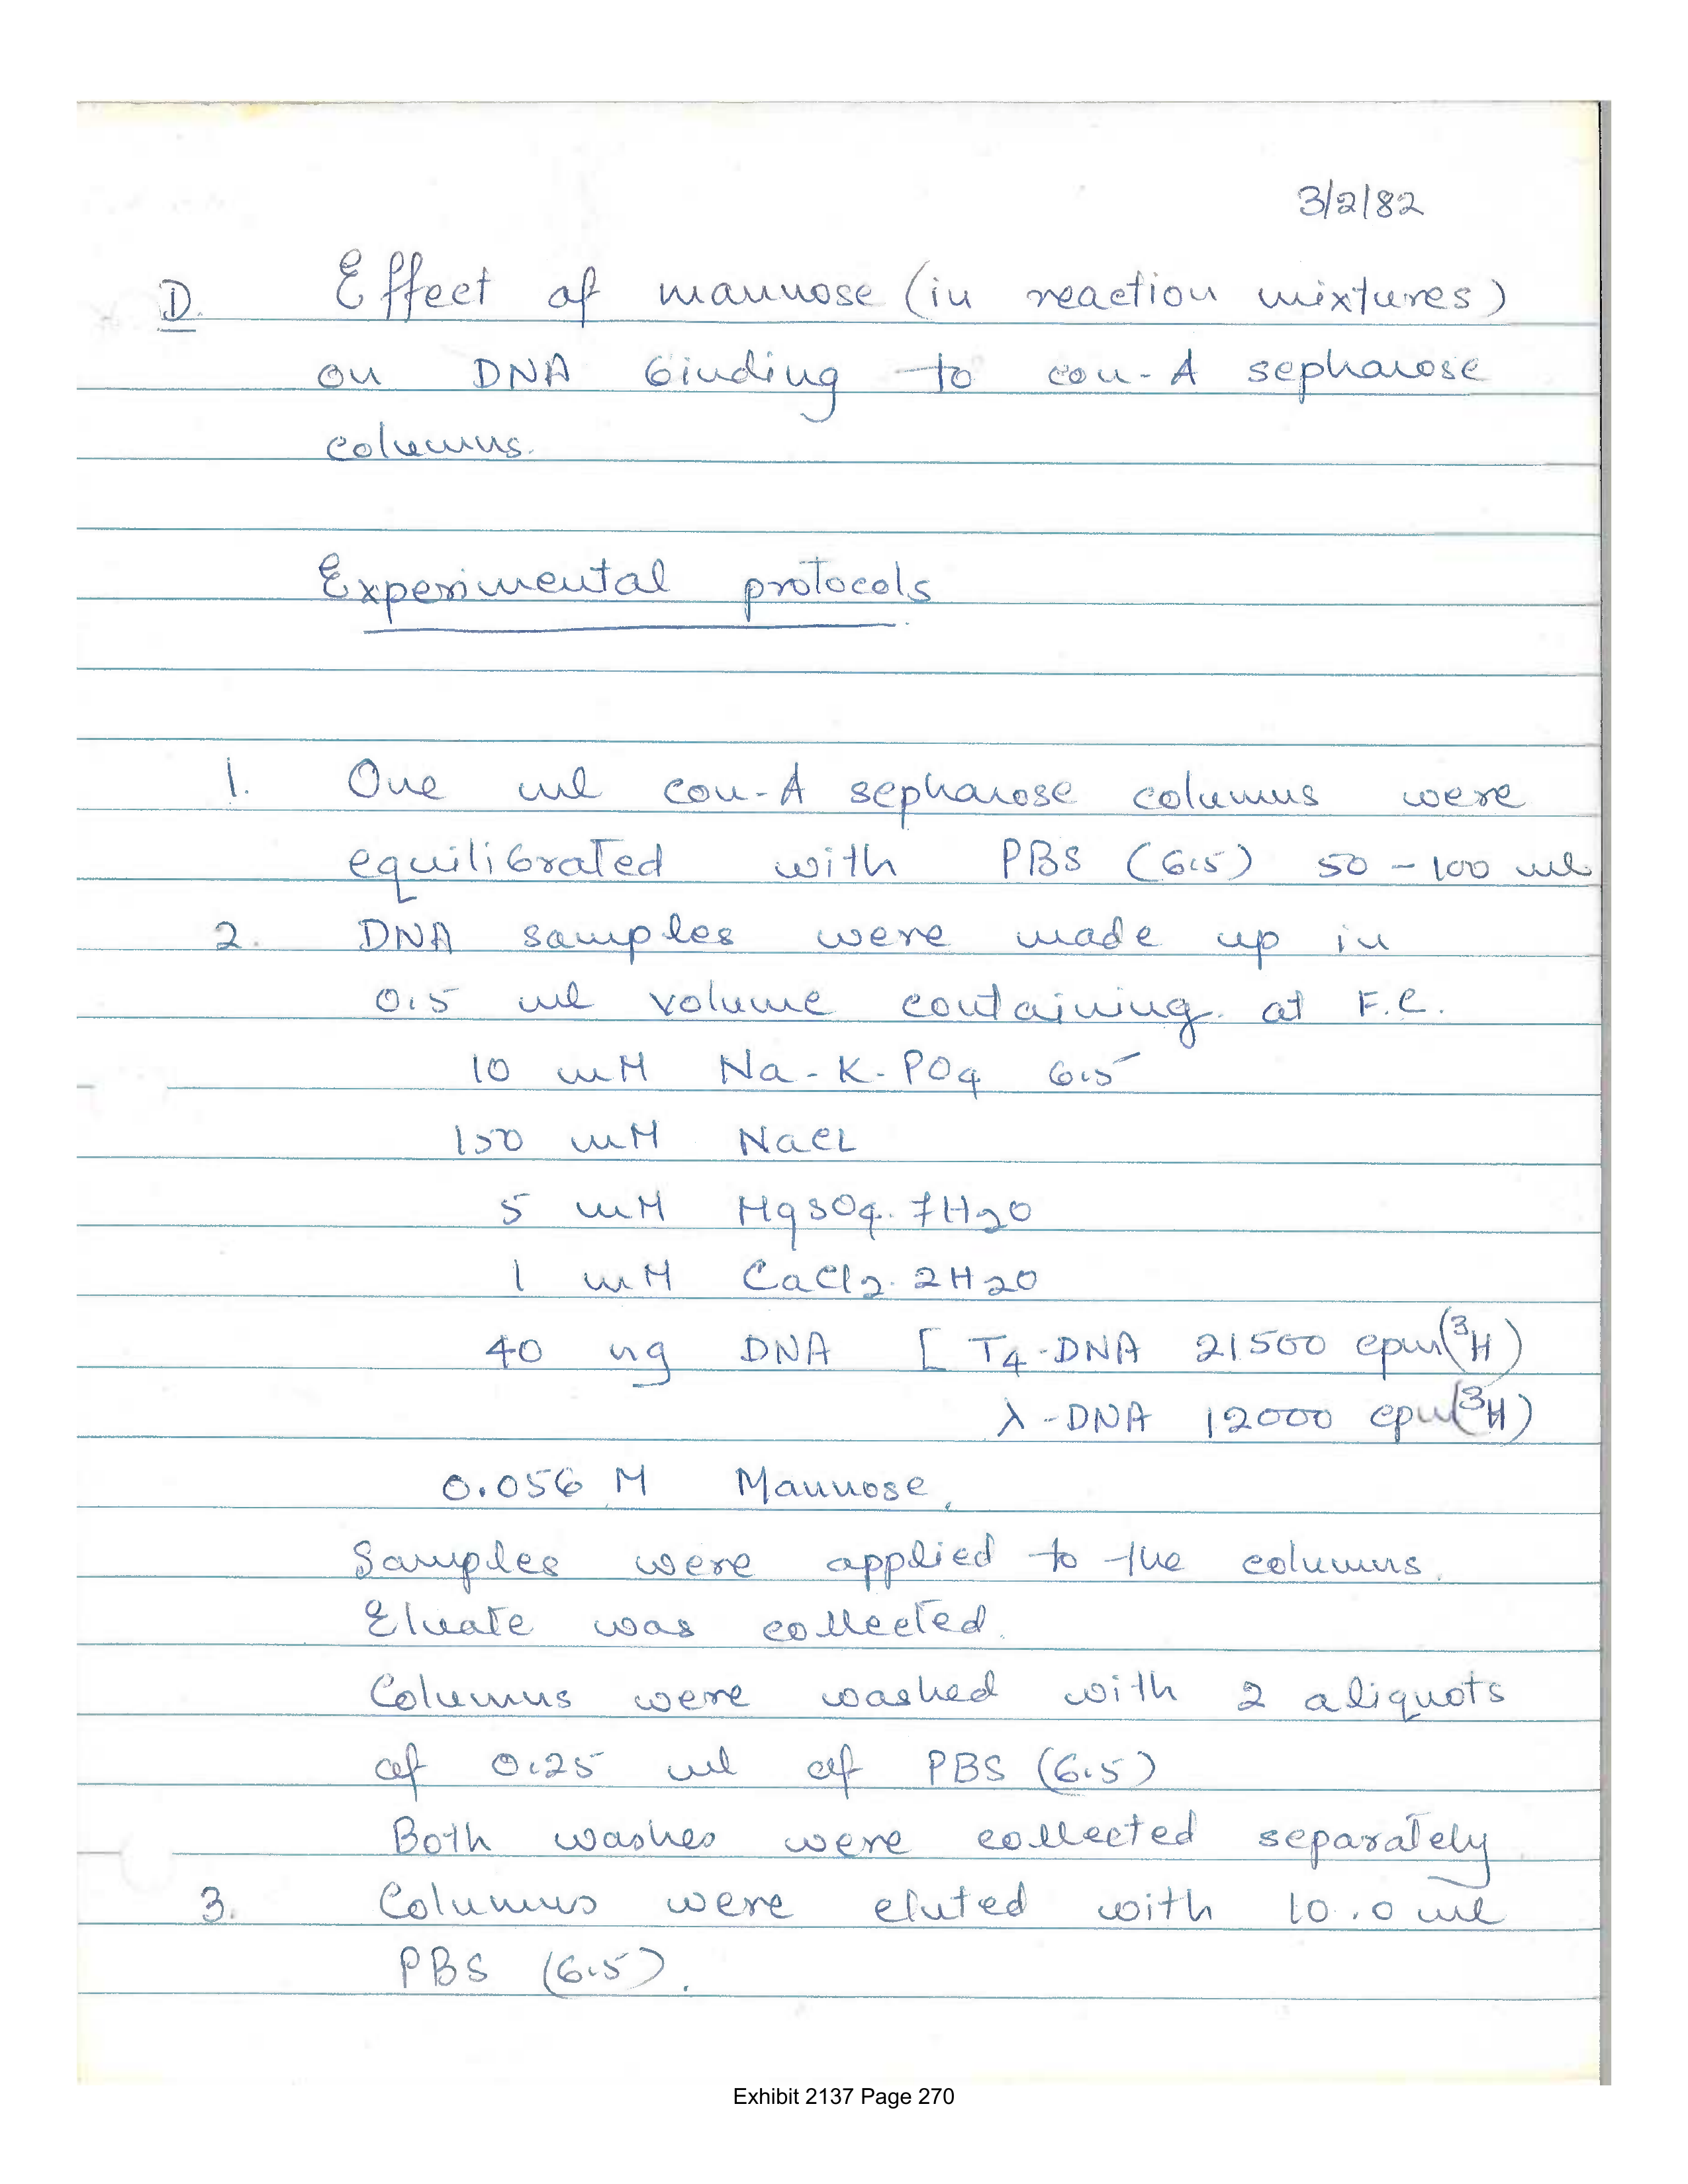 3/2/82
D. Effect of mannose (in reaction mixtures)
on DNA binding to con-A sepharose
columns.
Experimental protocols
1. One ml con-A sepharose columns were
equilibrated with PBS (6.5) 50-100 ml
2. DNA samples were made up in
0.5 ml volume containing at F.C.
10 mM Na-K-PO4 6.5
150 mM NaCl
5 mM MgSO4.7H2O
1 mM CaCl2.2H2O
40 ng DNA [ T4-DNA 21500 cpm (3H)
λ-DNA 12000 cpm (3H)
0.056 M Mannose.
Samples were applied to the columns.
Eluate was collected.
Columns were washed with 2 aliquots
of 0.25 ml of PBS (6.5)
Both washes were collected separately
3. Columns were eluted with 10.0 ml
PBS (6.5).
Exhibit 2137 Page 270